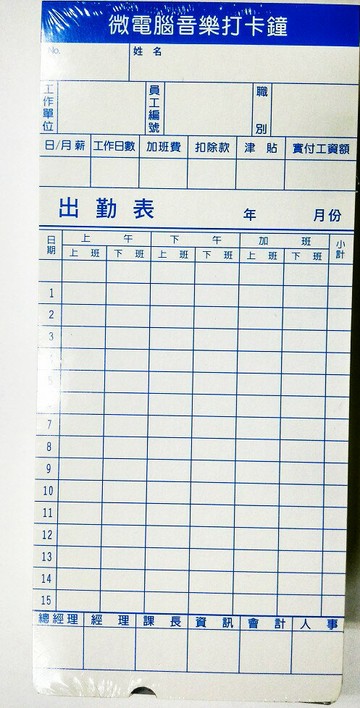 微電腦音樂打卡鐘
No. 姓名
工作單位 員工編號 職別
日/月薪 工作日數 加班費 扣除款 津貼 實付工資額
出勤表 年 月份
日期 上午 下午 加班 小計
上班 下班 上班 下班 上班 下班
1
2
3
4
5
7
8
9
10
11
12
13
14
15
總經理 經理 課長 資訊 會計 人事